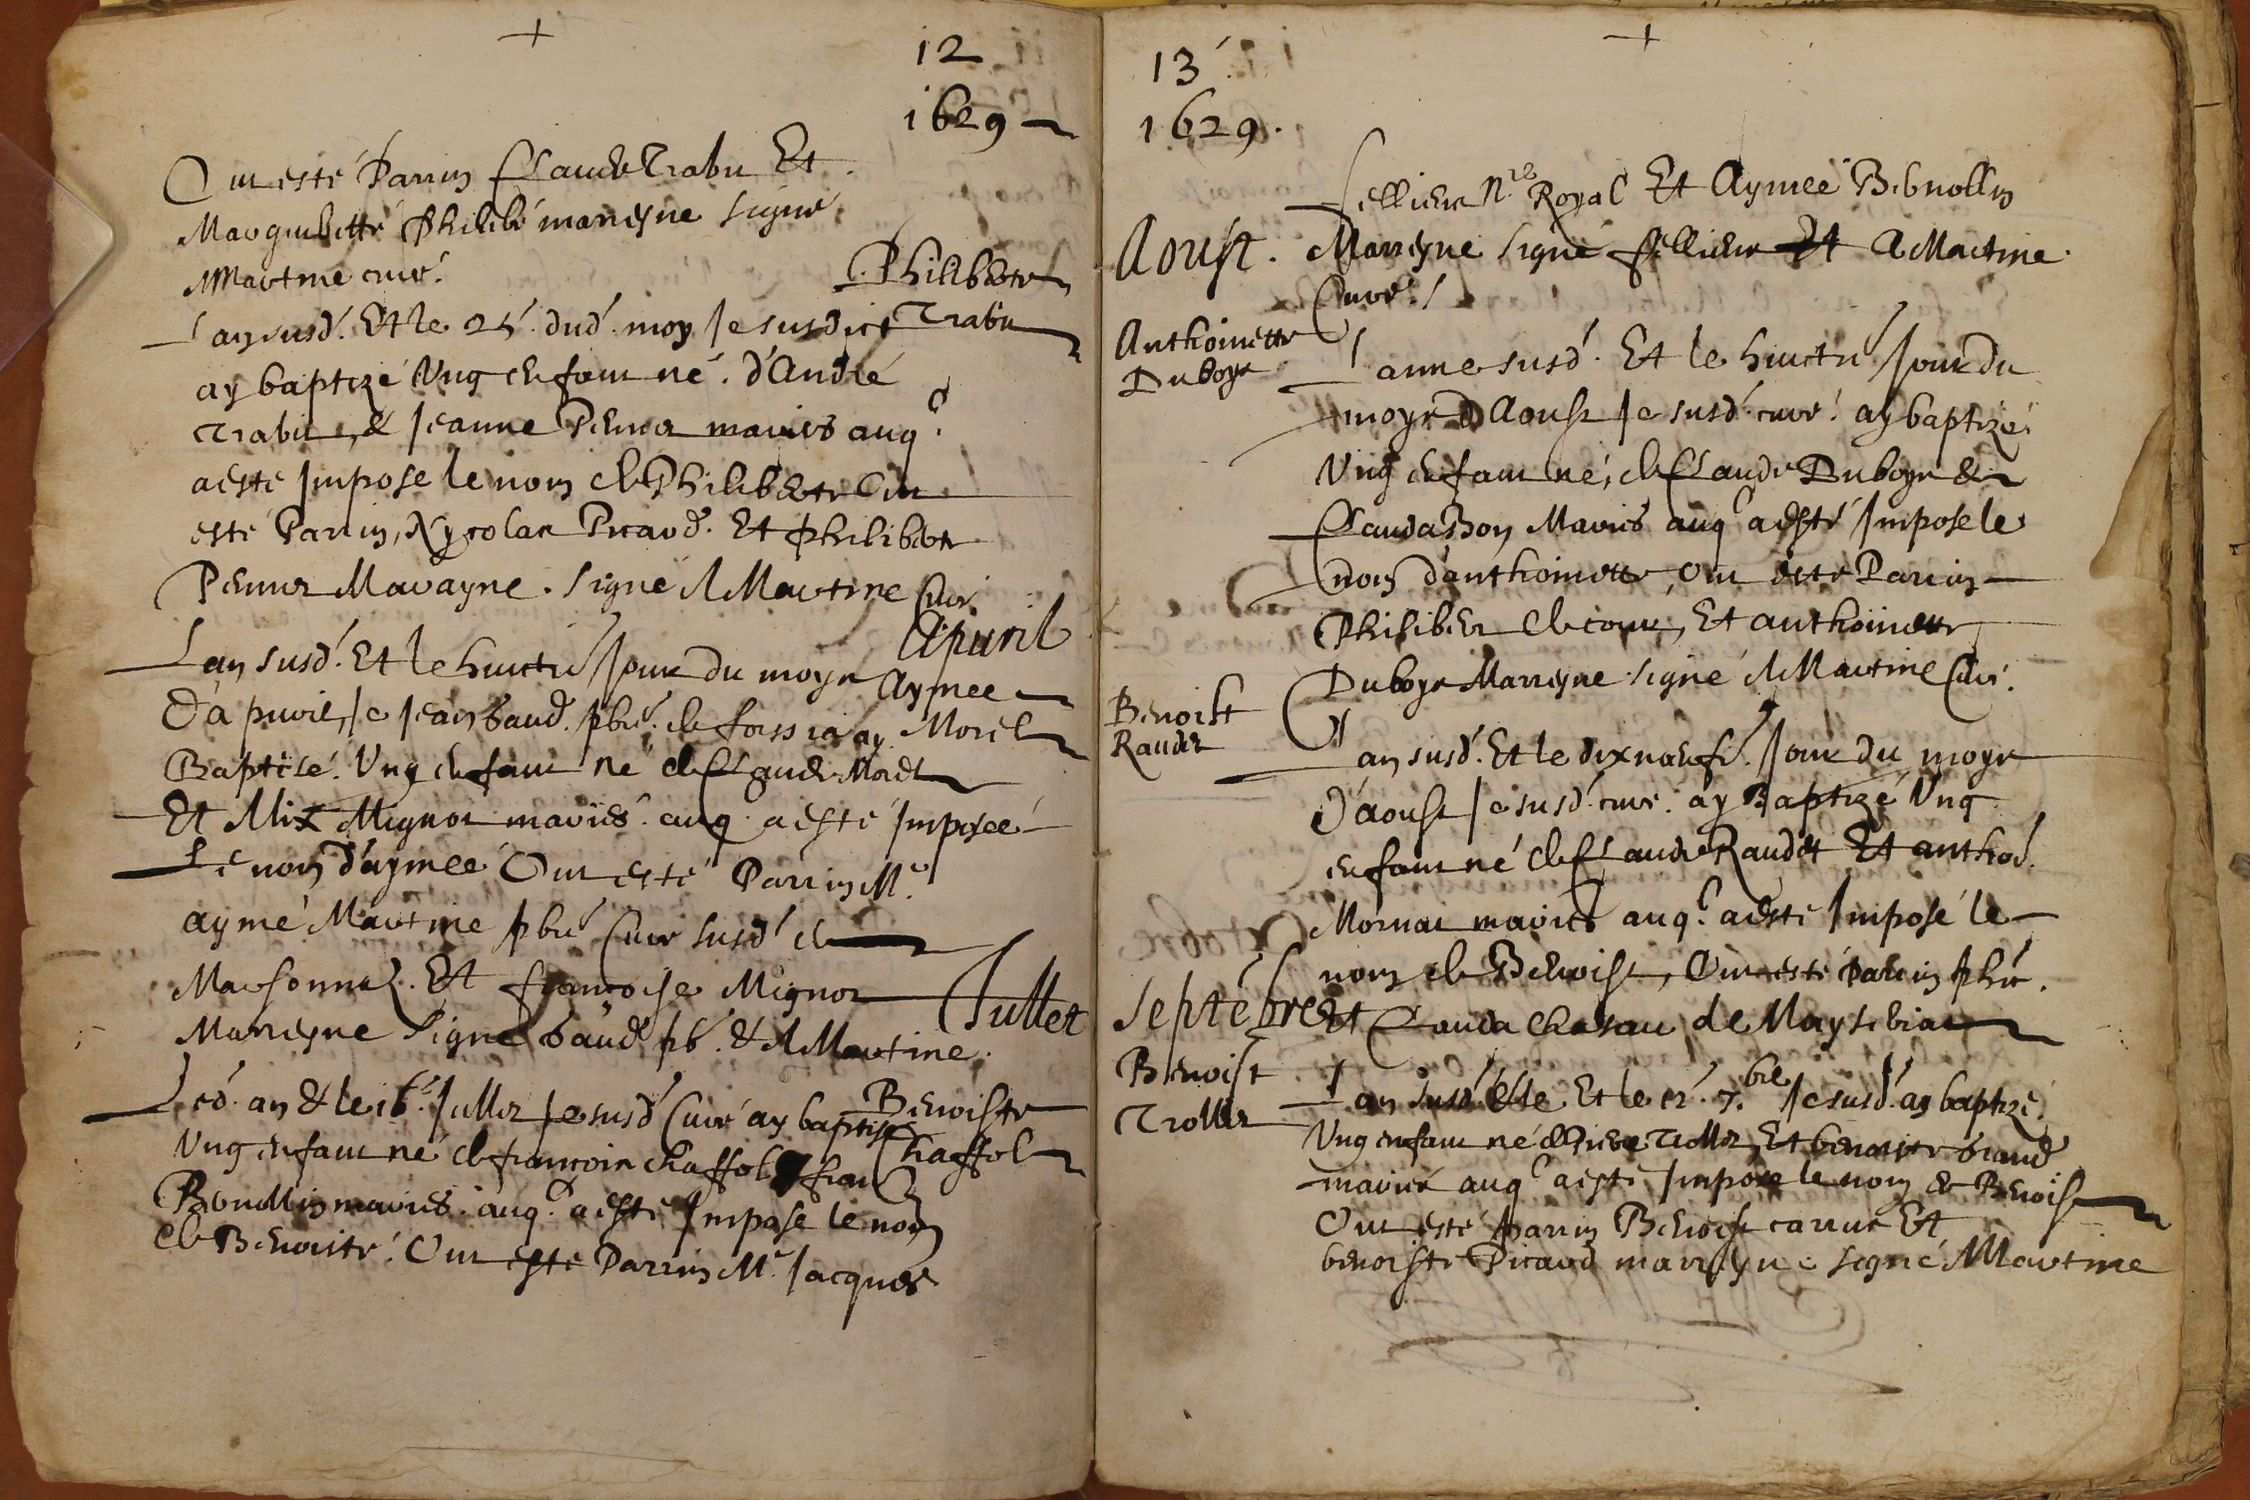 +
12
1629
Ont esté Parrin Claude Trabu Et
Marguerette Philibé marreyne signé
AMartine curé.
Philiberte
Trabu
L'an susd. Et le 25. dud. moy Je susdict
ay baptizé Ung enfant né. d'André
Trabu & Jeanne Perrier mariés auq.
a esté Imposé le nom de Philiberte Ont
esté Parrin, Nycolas Picard. Et Philiberte
Perrier Marayne. Signé AMartine Curé.
Apuril
L'an susd. Et le huictié Jour du moys
Aymee
Morel
D'apuril, Je Jean baud. pbré. de foissia ay
Baptisé. Ung enfant né de Claude Morel
Et Mix Mignot mariés. auq. a esté Imposeé
Le nom d'aymeé Ont esté Parrin Mre
aymé Martine pbré Curé susd de
Marsonnaz. Et françoise Mignot
Marreyne Signé baud pb. & AMartine.
Jullet
Benoiste
Chaffol
Led. an & le 16. Jullet Je susd Curé ay baptisé
Ung enfant né de françois chaffol & fran
Benollin mariés. auq. a esté Imposé le nom
de Benoiste. Ont esté Parrin Mre Jacques
+
13
1629.
sellier Nre Royal Et Aymeé Benollin
Aoust. Marreyne Signé sellier Et AMartine
Curé.
Anthoinette
Duboys
L'anne susd. Et le huictié Jour du
moys d'Aoust Je susd. curé. ay baptizé
Ung enfant né, de Claude Duboys &
Clauda Bon Mariés auq a esté Imposé le
nom d'anthoinette, Ont esté Parrin
Philiber decour, Et anthoinette
Duboys Marreyne signé AMartine Curé.
Benoist
Raudet
L'an susd. Et le dixneufié. Jour du moys
D'aoust Je susd. curé. ay Baptizé Ung
enfant né de Claude Raudet Et antho.
Mornai mariés auq. a esté Imposé le
nom de Benoist, Ont esté Parrin phi.
Septēbre Et Clauda chasau de Maysebiau
Benoist
Trollet
L'an susd. Et le 12. 7.bre Je susd. ay baptizé
Ung enfant né d'Piere Trollet, Et benoiste braud
mariés auq a esté Imposé le nom de Benoist
Ont esté parrin Benoist carrur Et
benoiste Picard marreyne signé AMartine